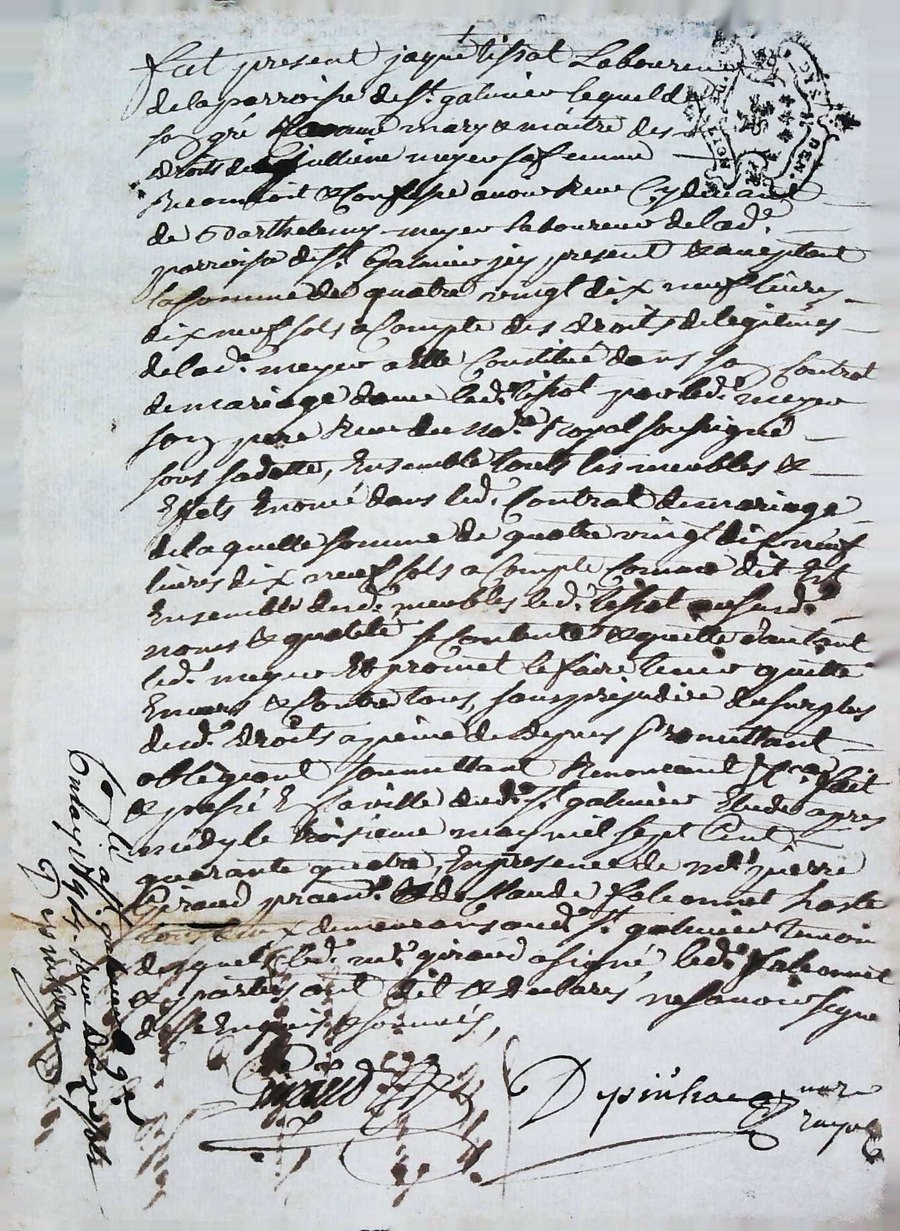 fut present jaque tissot Laboureur
de la parroisse de st. galmier lequel de
son gré comme mary & maitre des
droits de jullienne meyer sa femme
Reconnoit & Confesse avoir Receu Cy devant
de Barthelemy meyer laboureur de lad.e
parroisse de st. Galmier jcy present & acceptant
la somme de quatre vingt dix neuf livres
dix neuf sols a Compte des droits de legitimes
de lad.e meyer a elle Constitué dans son Contrat
de mariage d'avec led.t tissot par led.t meyer
son pere Receu du no.re Royal soussigné
sous sa datte, Ensemble touts les meubles &
Effets Enoncé dans led.t Contrat de mariage
de laquelle somme de quatre vingt dix neuf
livres dix neuf sols a Compte Comme dit Est
Ensemble desd.ts meubles led.t tissot aususd.t
noms & qualité se Contente & quitte d'autant
led.t meyer Et promet le faire tenir quitte
Envers & Contre tous, sans prejudice du surplus
desd.ts droits a peine de depens Promettant
obligeant soumettant Renonceant fait
& passé En la ville dud.t st. galmier Etude apres
midy le troisieme may mil sept Cent
quarante quatre, En presence de m.re pierre
Giraud & de Claude falconnet hoste
tous deux demeurans aud.t st. galmier temoin
desquels led.t m.re giraud a signé led.t falconnet
& parties ont dit & declarés ne sçavoir signer
de ce Enquis & sommés,
Giraud
Depinhac nore
royal
st. galmier
may 1744 Receu douze sols